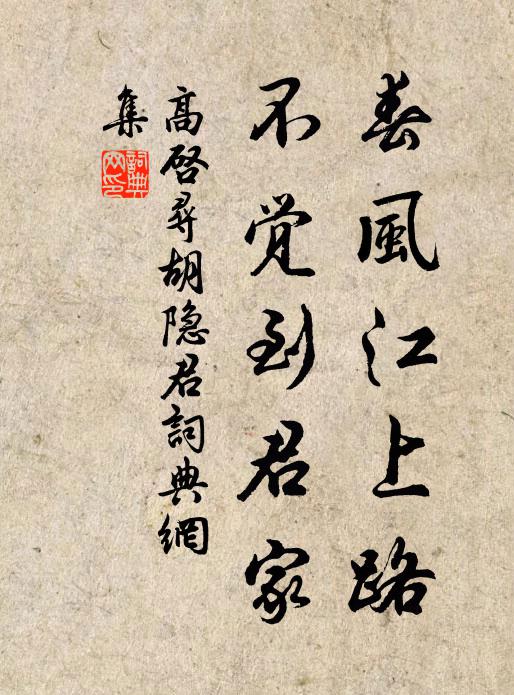 春風江上路
不覚到君家
高啓尋胡隐君詞典網
集
詞典
网印